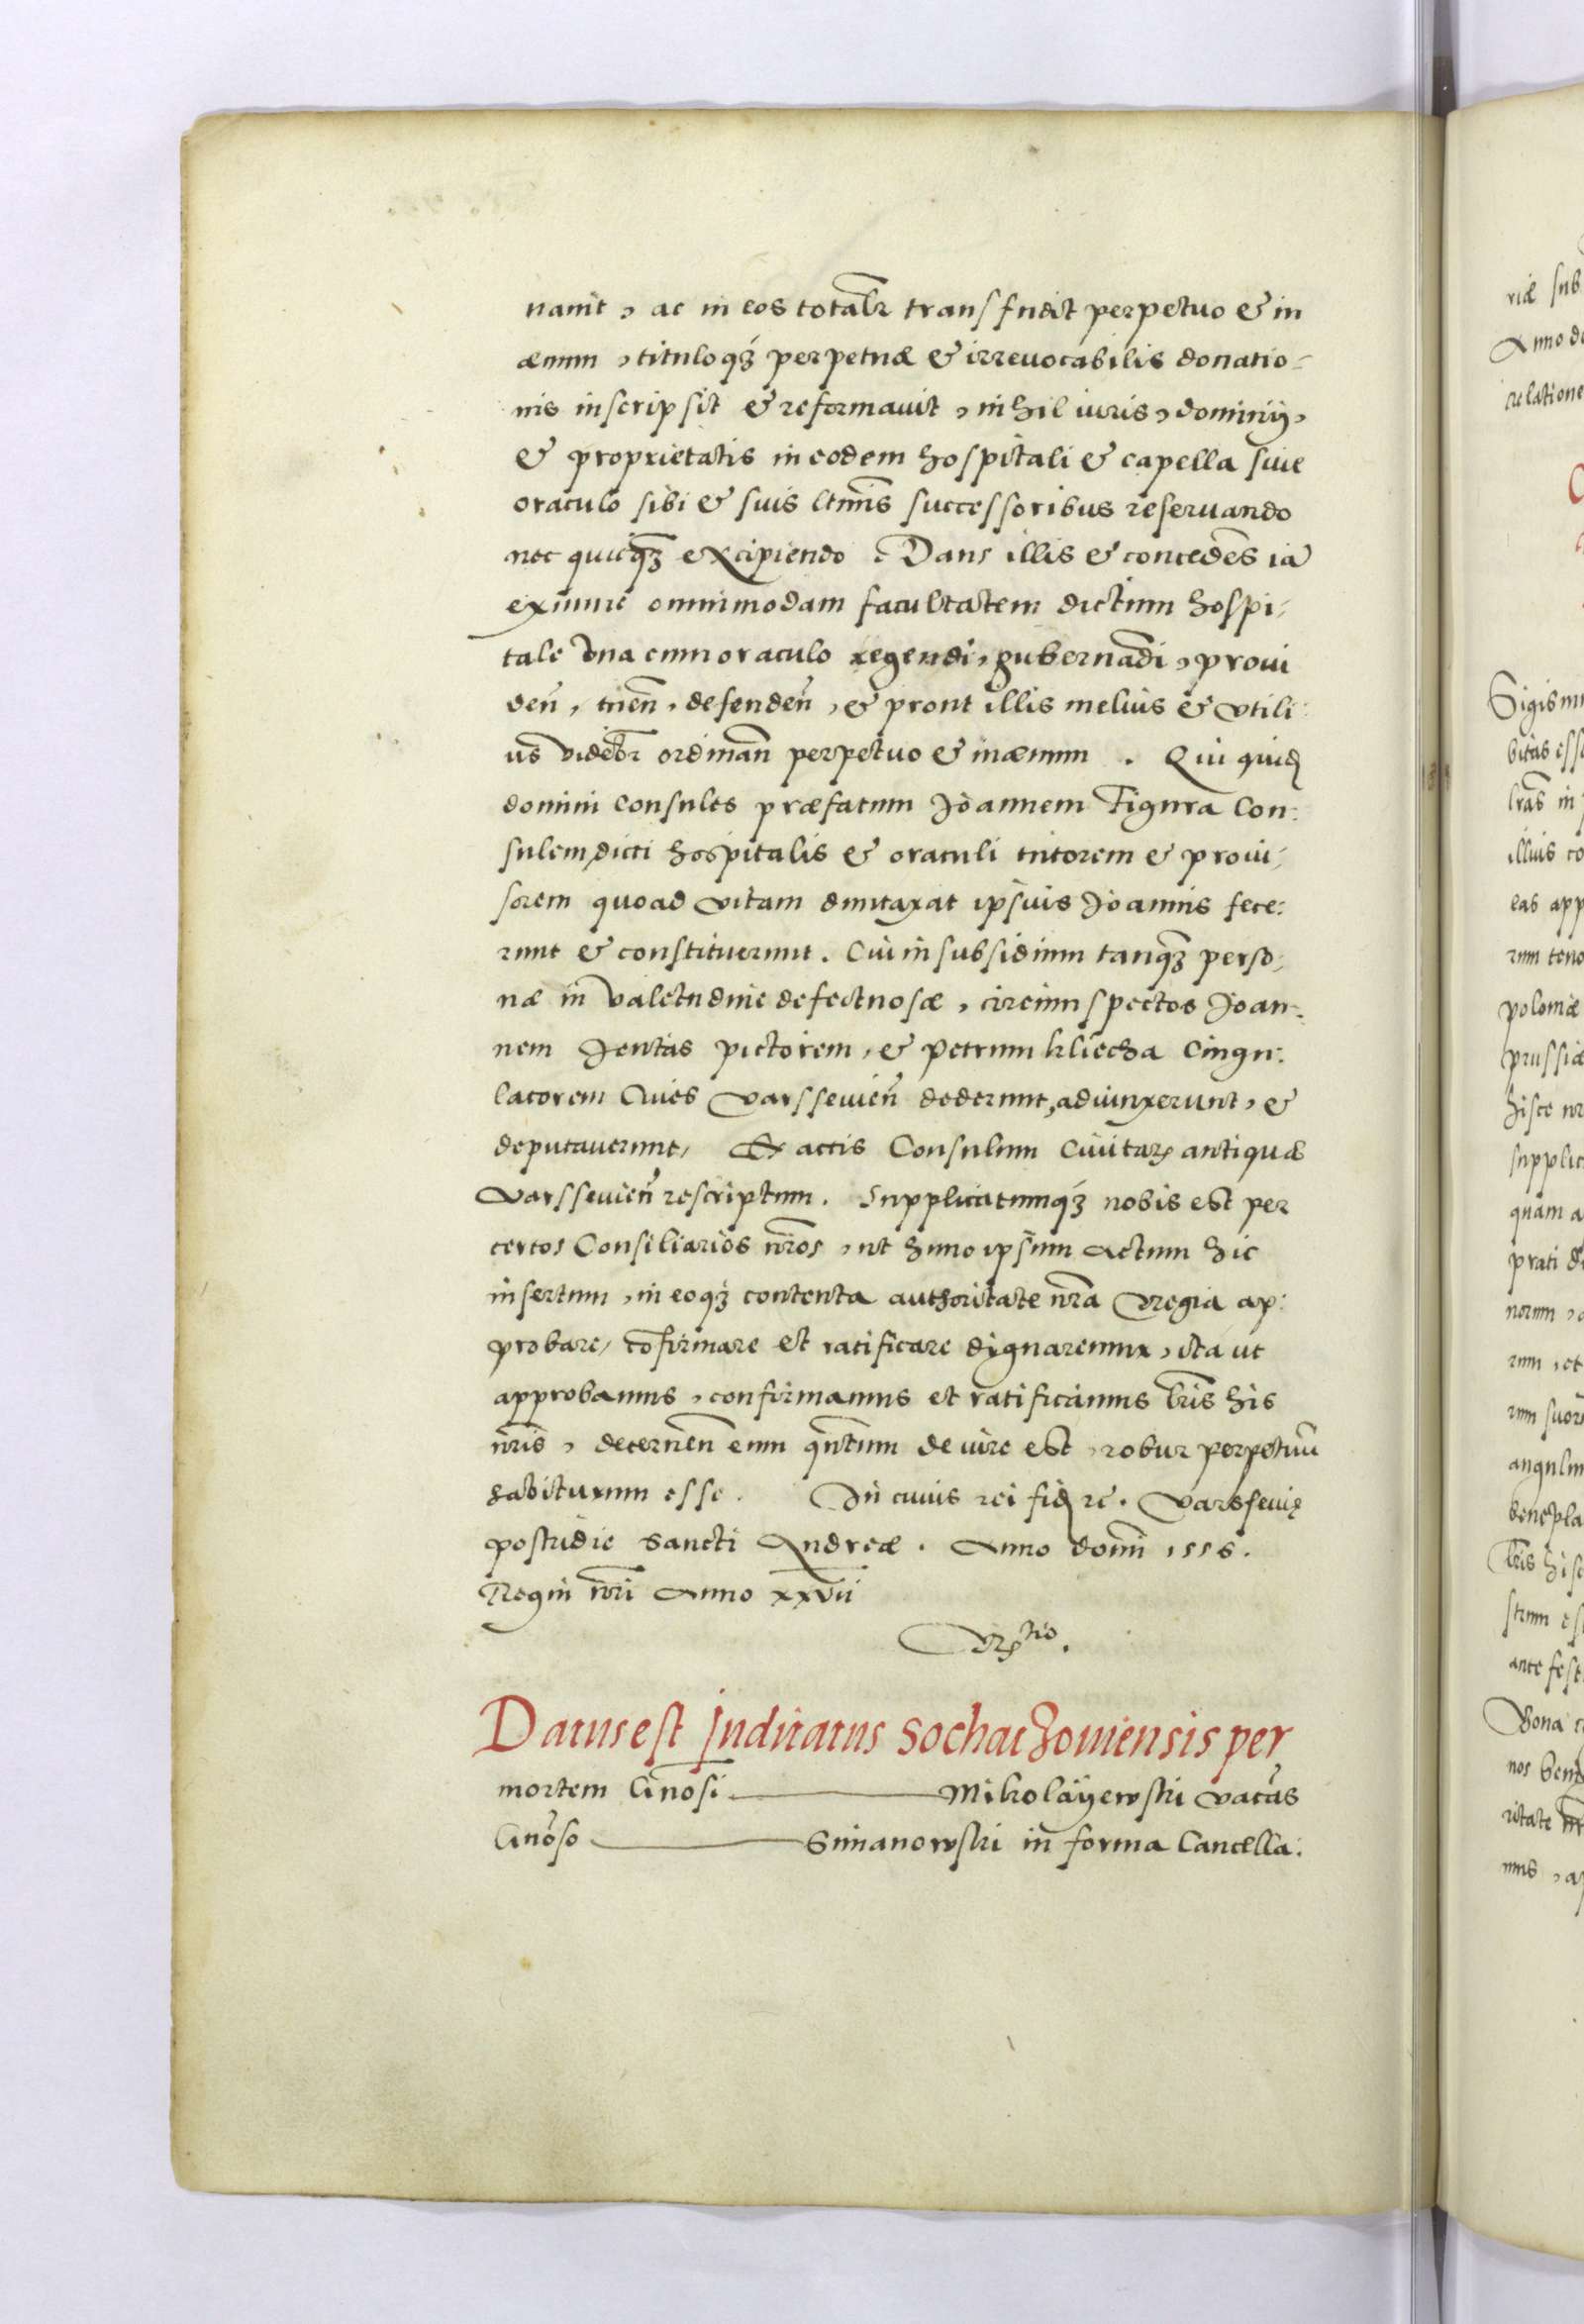 navit, ac in eos totalr transfudit perpetuo & in
ævum, tituloqȝ perpetuæ & irrevocabilis donatio-
nis inscripsit & reformavit, nihil iuris, dominij,
& proprietatis in eodem hospitali & capella sive
oraculo sibi & suis ltmis successoribus reservando
nec quicqȝ excipiendo. Dans illis & concedes ia
exnunc omnimodam facultatem dictum hospi-
tale una cum oraculo regendi, gubernadi, provi
den, tuen, defenden, & prout illis melius & utili:
us videbr ordinan perpetuo & in ævum. Qui quid
domini Consules præfatum Joannem Figura Con:
sulem, dicti hospitalis & oraculi tutorem & provi-
sorem quoad vitam duntaxat ipsius Joannis fece:
runt & constituerunt. Cui in subsidium tanqȝ perso-
næ in valetudine defectuosæ, circumspectos Joan-
nem Jentas pictorem, & Petrum kliecha Cingu:
latorem Cives Varssevien dederunt, adiunxerunt, &
deputaverunt, Ex actis Consulum Civitat antiquæ
Varssevien rescriptum. Supplicatumqȝ nobis est per
certos Consiliarios nros, ut hunc ipsum actum hic
insertum, in eoqȝ contenta authoritate nra regia ap:
probare, cofirmare et ratificare dignaremur, ita ut
approbamus, confirmamus et ratificamus lris his
nris, decernen eum quntum de iure est, robur perpetuu
habiturum esse. In cuius rei fid rc. Varssevię
postridie Sancti Andreæ. Anno domi 1556.
Regni nri Anno xxvii
Rtio.
Datus est Judicatus Sochaczoviensis per
mortem Gnosi Mikolaijewski vacas
Gnoso Simanowski in forma Cancella:
riæ sub
Anno do
relatione
Sigism
bitas esse
lras in
illius co
eas app
rum teno
poloniæ
prussiæ
hisce nr
supplic
quam a
prati
norum
rum, et
rum suor
angulm
benepla
lris hisc
strum es
ante fest
Bona
nos
ritate
mus, a